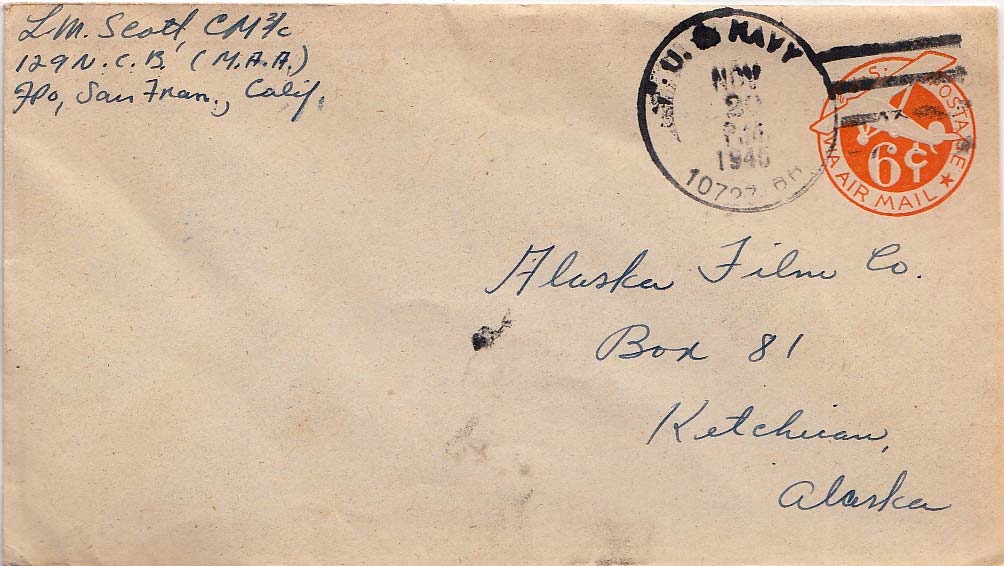 L.M. Scott, CM3/c
129 N. C. B. (M.A.A.)
FPO, San Fran., Calif.
U. S. NAVY
NOV
P.M.
1945
U.S. POSTAGE
6¢
VIA AIR MAIL
Alaska Film Co.
Box 81
Ketchican,
Alaska